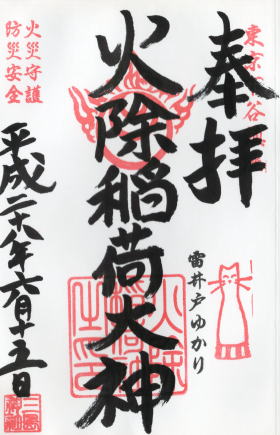 奉拝
雷井戸ゆかり
火除稲荷大神
火災守護
防災安全
平成二十八年六月十五日